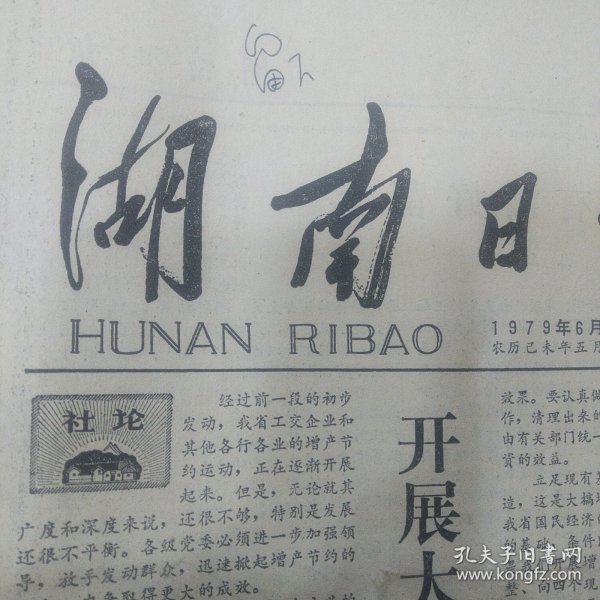 留下
湖南日
HUNAN RIBAO
1979年6月
农历己未年五月
社论
经过前一段的初步
发动，我省工交企业和
其他各行各业的增产节
约运动，正在逐渐开展
起来。但是，无论就其
广度和深度来说，还很不够，特别是发展
还很不平衡。各级党委必须进一步加强领
导，放手发动群众，迅速掀起增产节约的
取得更大的成效。
开展大
效果。要认真做
作，清理出来的
由有关部门统一
资的效益。
立足现有
造，这是大搞
我省国民经济
的基础，条件
整、向四个现
孔夫子旧书网
www.kongfz.com